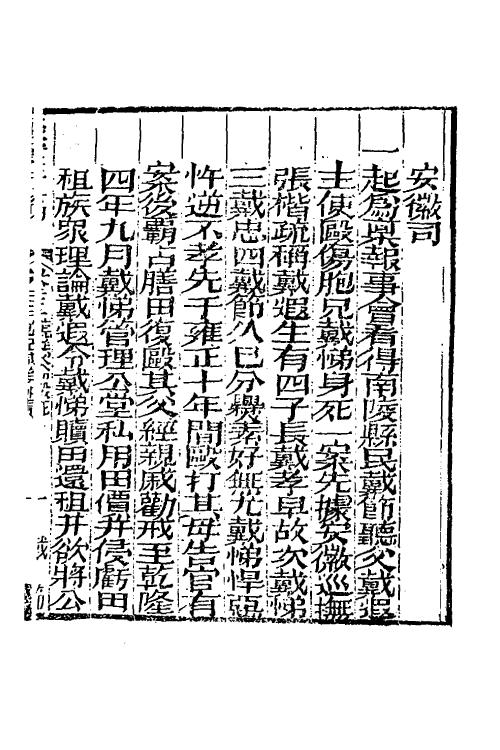 安徽司
一起爲稟報事會看得南陵縣民戴節聽父戴遐
主使毆傷胞兄戴悌身死一案先據安徽巡撫
張楷疏稱戴遐生有四子長戴孝早故次戴悌
三戴忠四戴節久已分爨素好無尤戴悌悍惡
忤逆不孝先于雍正十年間毆打其母告官有
案後霸占膳田復毆其父經親戚勸戒至乾隆
四年九月戴悌管理公堂私用田價并侵虧田
租族衆理論戴遐令戴悌贖田還租并欲將公